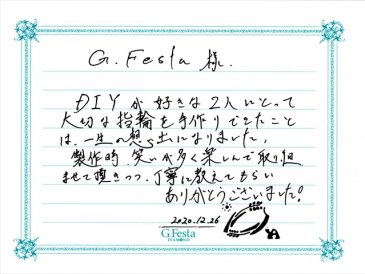 G.Festa 様.
DIYが好きな2人にとって
大切な指輪を手作りできたこと
は、一生の想い出になりました。
製作時、笑いが多く楽しんで取り組
ませて頂きつつ、丁寧に教えてもらい
ありがとうございました!
2020.12.26
G.Festa
DIAMOND